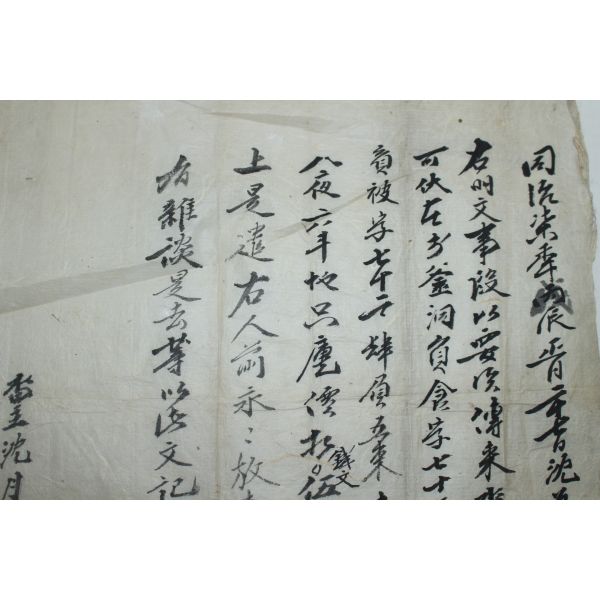 同治柒年戊辰正月二十七日沈
右明文事段以要用傳來
可伏在於釜洞員食字七十
員被字七十二肆負五束
八夜六斗地只廛價折錢文伍
上是遣右人前永〻放
有雜談是去等以此文記
畓主沈月